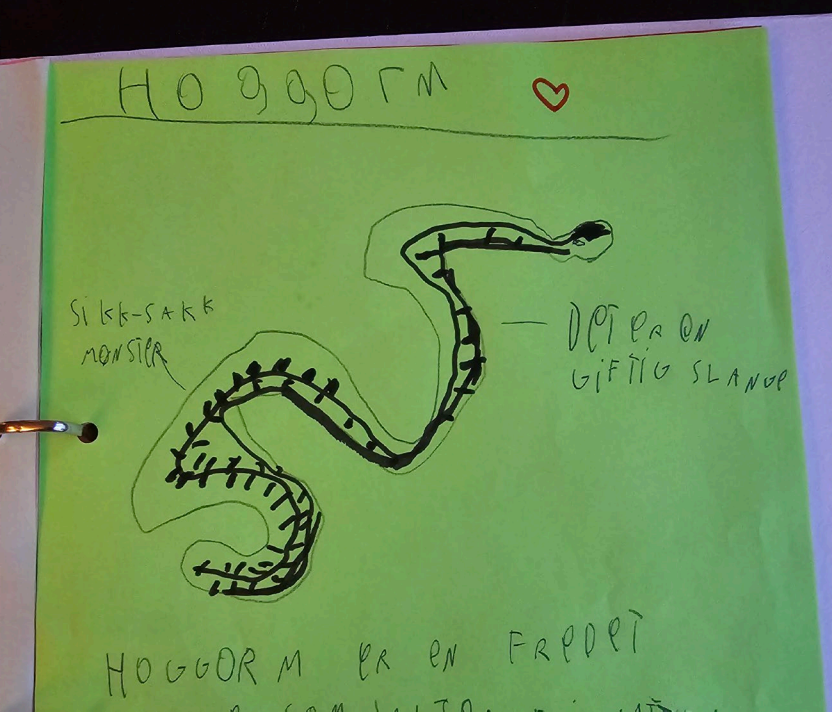 HoggOrM
SiKK-SAKK
MØNSTER
DeT er eN
GiFTiG SLANGe
HOGGORM er eN FReDeT